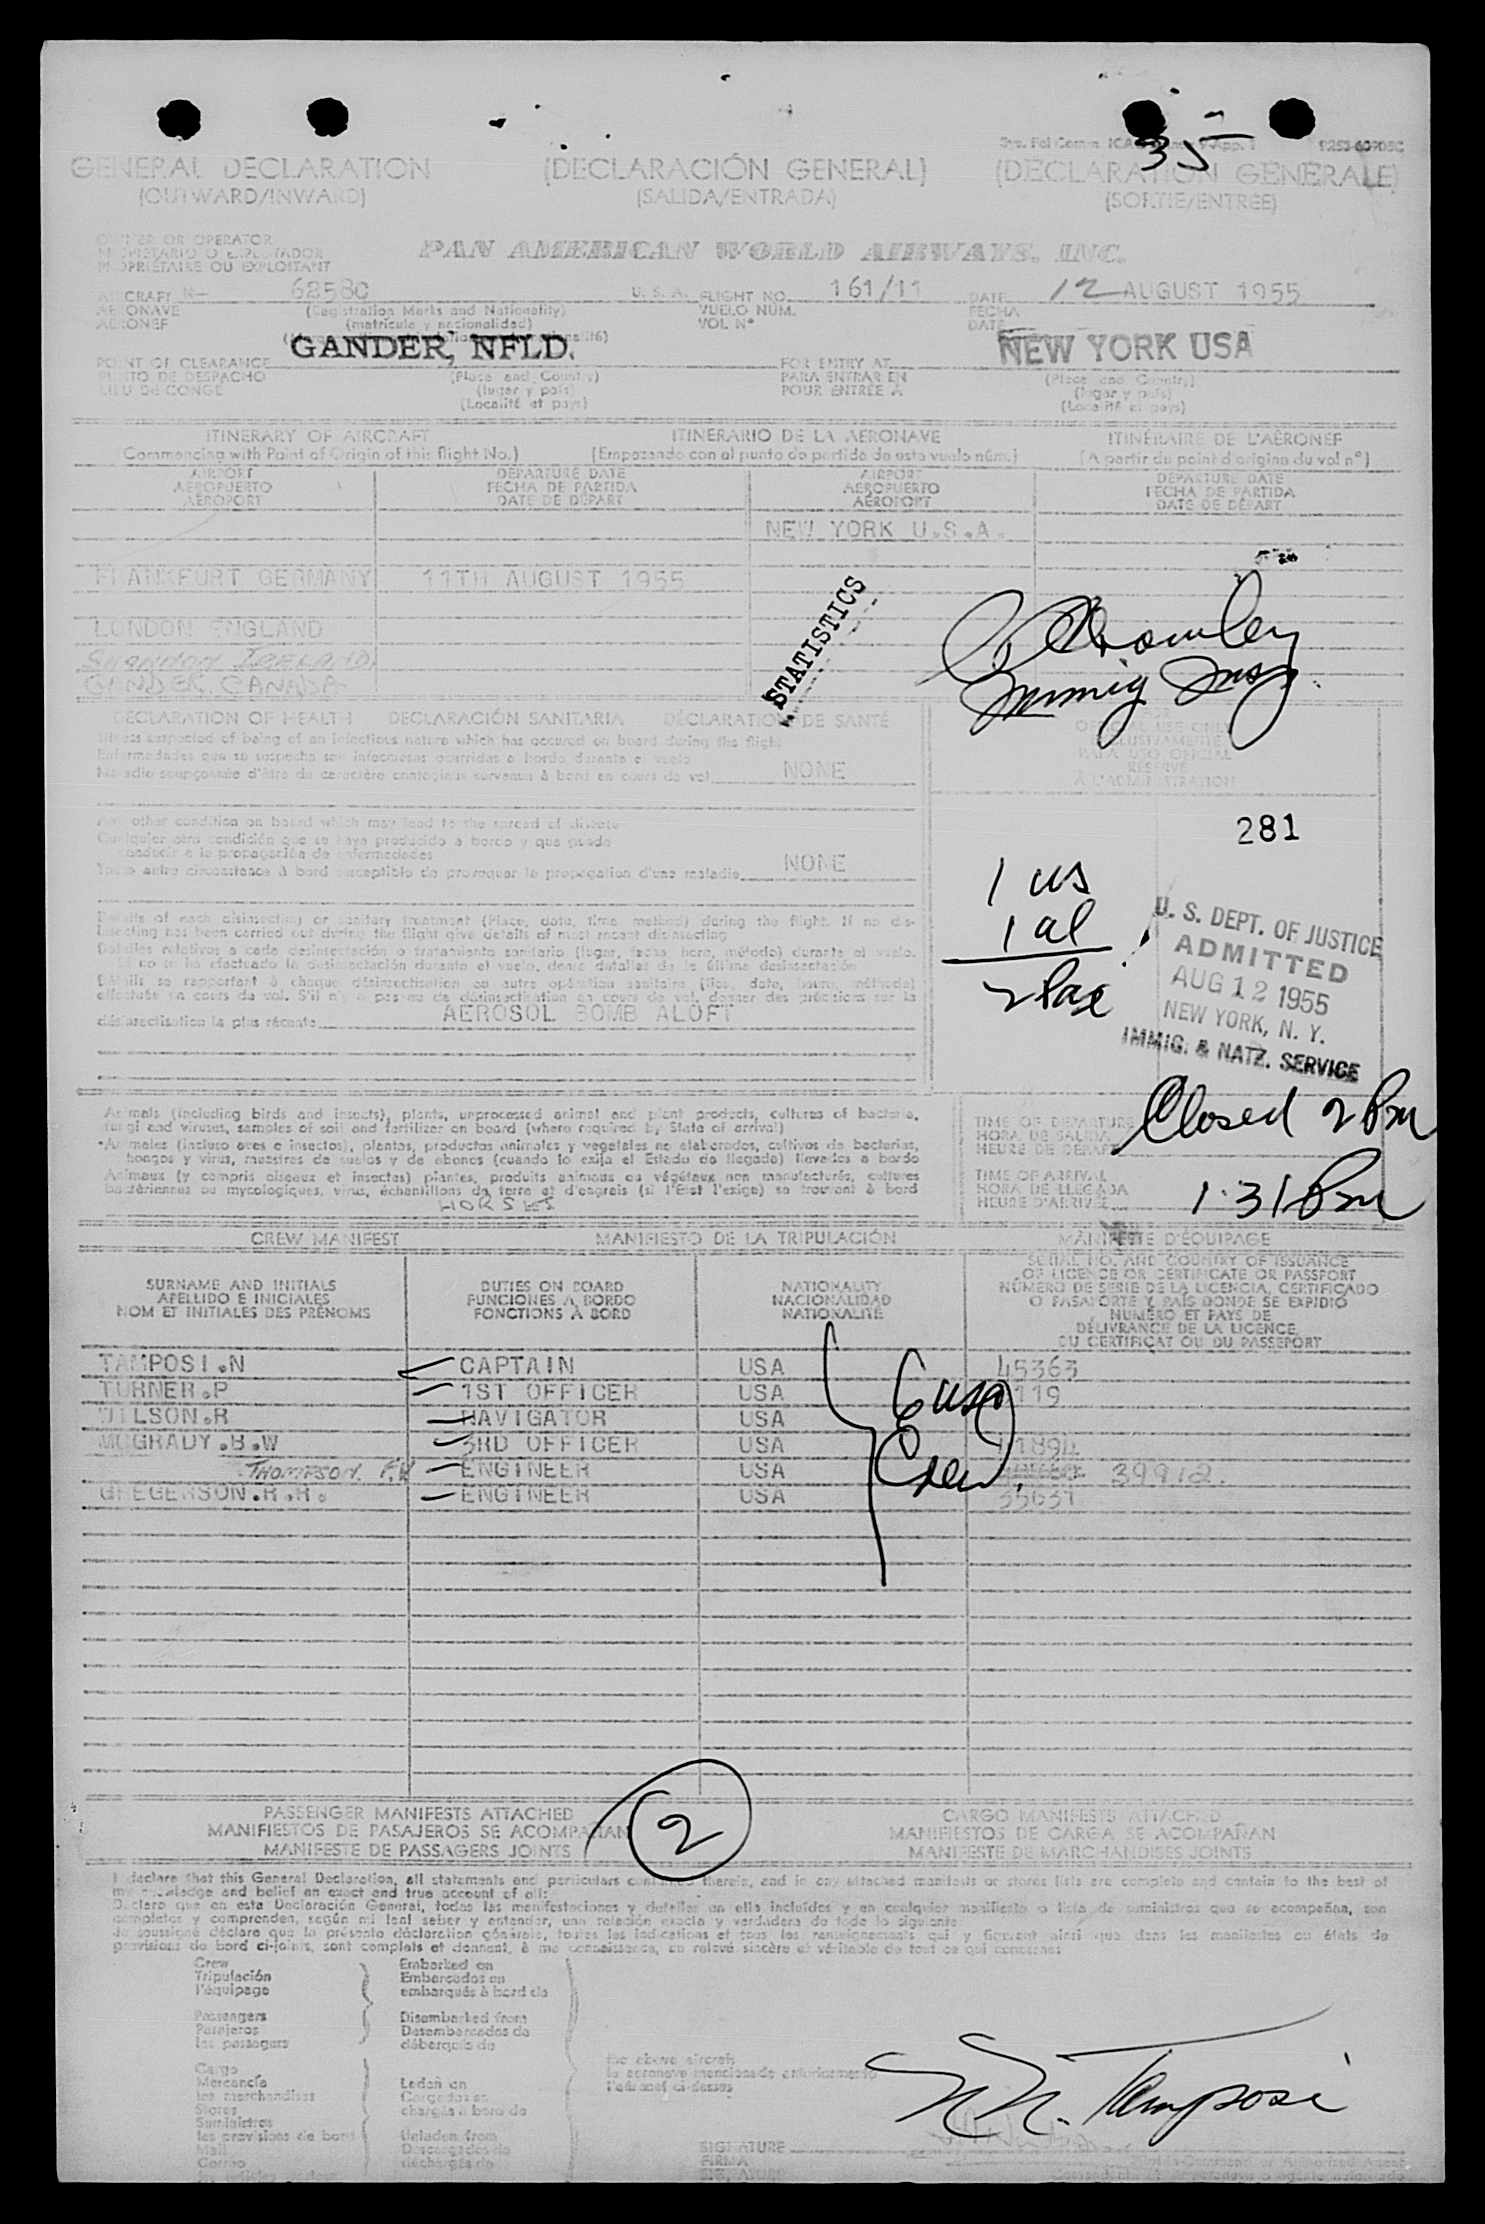 35-
GENERAL DECLARATION (DECLARACIÓN GENERAL) (DECLARATION GENERALE)
(OUTWARD/INWARD) (SALIDA/ENTRADA) (SORTIE/ENTREE)
OWNER OR OPERATOR
PROPIETARIO O EXPLOTADOR
PROPRIÉTAIRE OU EXPLOITANT
PAN AMERICAN WORLD AIRWAYS, INC.
AIRCRAFT N- 62580 U. S. A. FLIGHT NO. 161/11 DATE 12 AUGUST 1955
AERONAVE (Registration Marks and Nationality) VUELO NUM. FECHA
AÉRONEF (matricula y nacionalidad) VOL N° DATE
GANDER, NFLD. NEW YORK USA
POINT OF CLEARANCE FOR ENTRY AT
PUNTO DE DESPACHO (Place and Country) PARA ENTRAR EN (Place and Country)
LIEU DE CONGE (lugar y país) POUR ENTREE A (lugar y país)
(Localité et pays) (Localité et pays)
ITINERARY OF AIRCRAFT ITINERARIO DE LA AERONAVE ITINÉRAIRE DE L'AÉRONEF
(Commencing with Point of Origin of this flight No.) (Empezando con el punto de partida de este vuelo núm.) (A partir du point d'origine du vol n°)
AIRPORT DEPARTURE DATE AIRPORT DEPARTURE DATE
AEROPUERTO FECHA DE PARTIDA AEROPUERTO FECHA DE PARTIDA
AÉROPORT DATE DE DÉPART AÉROPORT DATE DE DÉPART
NEW YORK U.S.A.
FRANKFURT GERMANY 11TH AUGUST 1955
STATISTICS
LONDON ENGLAND
SHANNON IRELAND
GANDER CANADA
Crowley
Immig Insp.
DECLARATION OF HEALTH DECLARACIÓN SANITARIA DÉCLARATION DE SANTÉ
Illness suspected of being of an infectious nature which has occured on board during the flight
Enfermedades que se sospecha son infecciosas ocurridas a bordo durante el vuelo
Maladie soupçonnée d'être de caractère contagieux survenue à bord en cours de vol NONE
FOR
OFFICIAL USE ONLY
EXCLUSIVAMENTE
PARA USO OFICIAL
RÉSERVÉ
À L'ADMINISTRATION
Any other condition on board which may lead to the spread of disease
Cualquier otra condición que se haya producido a bordo y que pueda
conducir a la propagación de enfermedades
Toute autre circonstance à bord susceptible de provoquer la propagation d'une maladie NONE
281
1 us
1 al
2 Pax
U. S. DEPT. OF JUSTICE
ADMITTED
AUG 12 1955
NEW YORK, N. Y.
IMMIG. & NATZ. SERVICE
Details of each disinsecting or sanitary treatment (Place, date, time, method) during the flight. If no dis-
insecting has been carried out during the flight give details of most recent disinsecting
Detalles relativos a cada desinsectación o tratamiento sanitario (lugar, fecha, hora, método) durante el vuelo.
Si no se ha efectuado la desinsectación durante el vuelo, dense detalles de la última desinsectación
Détails se rapportant à chaque désinsectisation ou autre opération sanitaire (lieu, date, heure, méthode)
effectuée en cours de vol. S'il n'y a pas eu de désinsectisation en cours de vol, donner des précisions sur la
désinsectisation la plus récente AEROSOL BOMB ALOFT
Animals (including birds and insects), plants, unprocessed animal and plant products, cultures of bacteria,
fungi and viruses, samples of soil and fertilizer on board (where required by State of arrival)
Animales (incluso aves e insectos), plantas, productos animales y vegetales no elaborados, cultivos de bacterias,
hongos y virus, muestras de suelos y de abonos (cuando lo exija el Estado de llegada) llevados a bordo
Animaux (y compris oiseaux et insectes) plantes, produits animaux ou végétaux non manufacturés, cultures
bactériennes ou mycologiques, virus, échantillons de terre et d'engrais (si l'État l'exige) se trouvant à bord
HORSES
TIME OF DEPARTURE
HORA DE SALIDA
HEURE DE DÉPART
Closed 2 Pm
TIME OF ARRIVAL
HORA DE LLEGADA
HEURE D'ARRIVÉE
1:31 Pm
CREW MANIFEST MANIFIESTO DE LA TRIPULACIÓN MANIFESTE D'ÉQUIPAGE
SURNAME AND INITIALS
APELLIDO E INICIALES
NOM ET INITIALES DES PRÉNOMS
DUTIES ON BOARD
FUNCIONES A BORDO
FONCTIONS À BORD
NATIONALITY
NACIONALIDAD
NATIONALITÉ
SERIAL NO. AND COUNTRY OF ISSUANCE
OF LICENCE OR CERTIFICATE OR PASSPORT
NÚMERO DE SERIE DE LA LICENCIA, CERTIFICADO
O PASAPORTE Y PAÍS DONDE SE EXPIDIÓ
NUMÉRO ET PAYS DE
DÉLIVRANCE DE LA LICENCE,
DU CERTIFICAT OU DU PASSEPORT
TAMPOSI.N CAPTAIN USA 45363
TURNER.P 1ST OFFICER USA
WILSON.R NAVIGATOR USA
MCGRADY.B.W 3RD OFFICER USA
THOMPSON. ENGINEER USA 39912.
GREGERSON.H.H. ENGINEER USA 35637
6 usa
Crew
PASSENGER MANIFESTS ATTACHED CARGO MANIFESTS ATTACHED
MANIFIESTOS DE PASAJEROS SE ACOMPAÑAN 2 MANIFIESTOS DE CARGA SE ACOMPAÑAN
MANIFESTE DE PASSAGERS JOINTS MANIFESTE DE MARCHANDISES JOINTS
I declare that this General Declaration, all statements and particulars contained therein, and in any attached manifests or stores lists are complete and contain to the best of
my knowledge and belief an exact and true account of all:
Declaro que en esta Declaración General, todas las manifestaciones y detalles en ella incluidos y en cualquier manifiesto o lista de suministros que se acompañan, son
completos y comprenden, según mi leal saber y entender, una relación exacta y verdadera de todo lo siguiente
Je soussigné déclare que la présente déclaration générale, toutes les indications et tous les renseignements qui y figurent ainsi que dans les manifestes ou états de
provisions de bord ci-joints, sont complets et donnent, à ma connaissance, un relevé sincère et véritable de tout ce qui concerne:
Crew Embarked on
Tripulación Embarcados en
l'équipage embarqués à bord de
Passengers Disembarked from
Pasajeros Desembarcados de
les passagers débarqués de
Cargo
Mercancía Laden on
les marchandises Cargados en
Stores chargés à bord de
Suministros
les provisions de bord Unladen from
Mail Descargados de
Correo déchargés de
the above aircraft
la aeronave mencionada anteriormente
l'aéronef ci-dessus
N. N. Tamposi
SIGNATURE
FIRMA
SIGNATURE